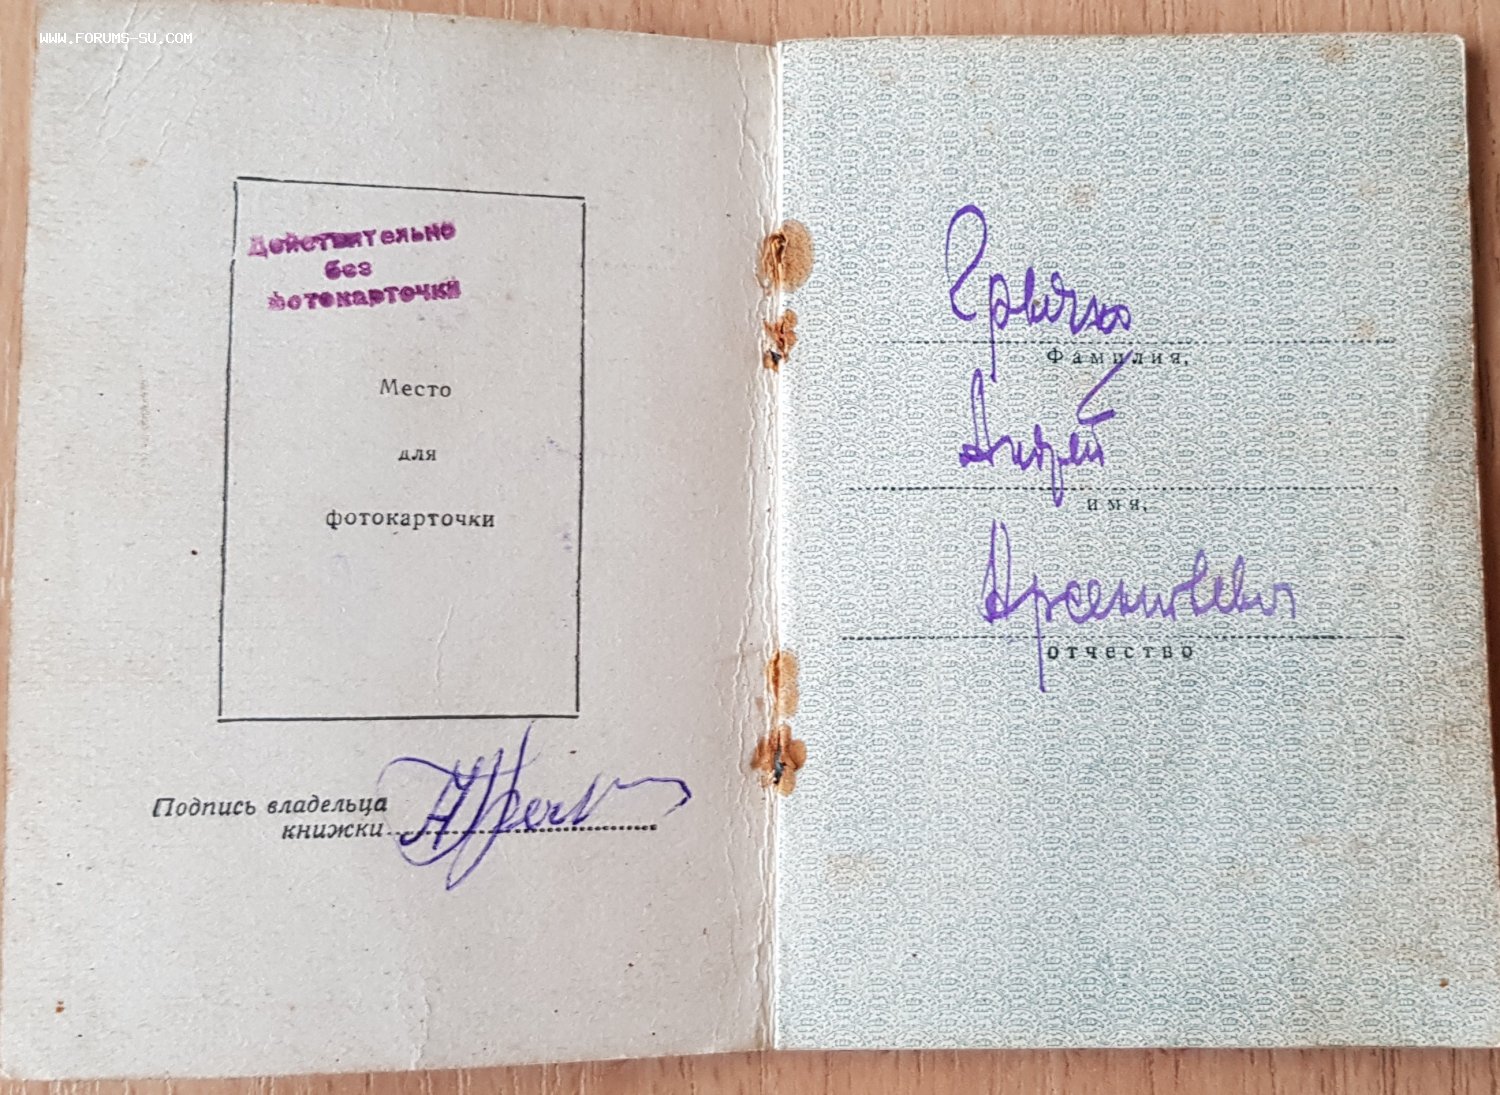 WWW.FORUMS-SU.COM
Действительно
без
фотокарточки
Место
для
фотокарточки
Подпись владельца
книжки
Гречко
Фамилия,
Андрей
имя,
Арсентьевич
отчество